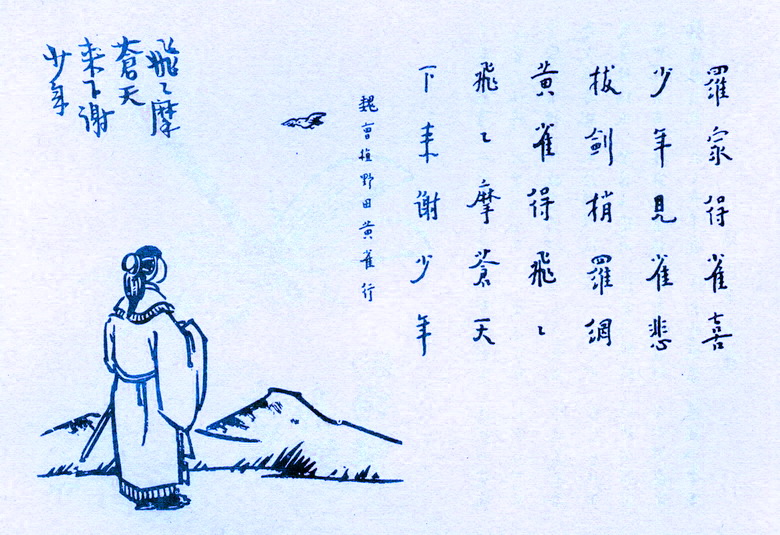 羅家得雀喜
少年見雀悲
拔劍捎羅網
黄雀得飛々
飛々摩蒼天
下来謝少年
魏曹植野田黄雀行
飛々摩
蒼天
来下謝
少年